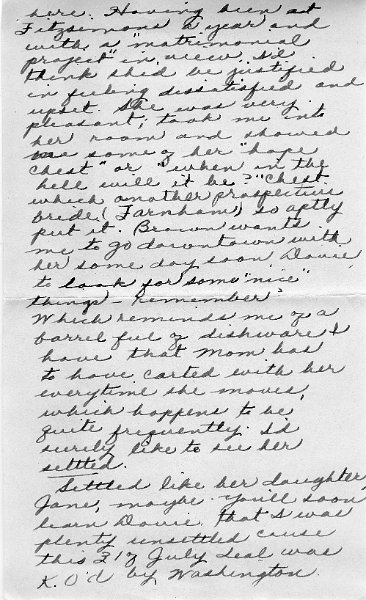 here. Having been at
Fitzsimons a year and
with a "matrimonial
project" in view I'd
think she'd be justified
in feeling dissatisfied and
upset. She was very
pleasant; took me into
her room and showed
me some of her "hope
chest" or "when in the
hell will it be?" chest
which another prospective
bride (Farnham) so aptly
put it. Brown wants
me to go downtown with
her some day soon Dowie
to look for some "nice"
things - remember?
Which reminds me of a
barrel full of dishware I
have that Mom has
to have carted with her
everytime she moves,
which happens to be
quite frequently. I'd
surely like to see her
settled.
Settled like her daughter,
Jane, maybe. You'll soon
learn Dowie that I was
plenty unsettled cause
this 21 of July deal was
K.O'd by Washington.